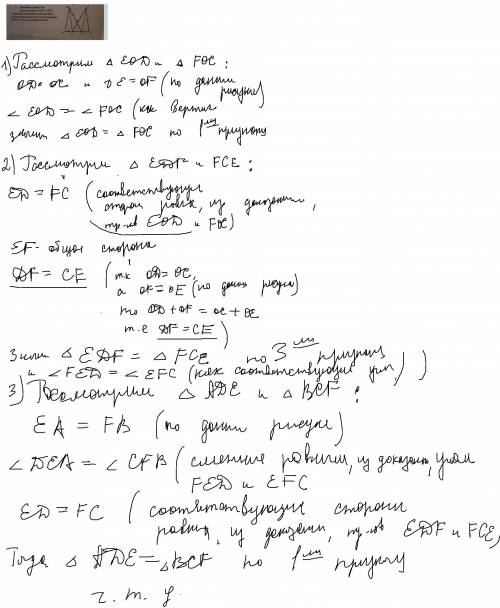 1) Рассмотрим △ EOD и △ FOC :
OD = OC и OE = OF (по данным
рисунка)
∠ EOD = ∠ FOC (как вертик
значит △ EOD = △ FOC по 1ᵐᵘ признаку
2) Рассмотрим △ EDF и FCE :
ED = FC (соответствующие
стороны равны, из доказанного,
тр-ков EOD и FOC)
EF - общая сторона
DF = CE (т.к OD = OC,
а OF = OE (по данным рисунка)
то OD + OF = OC + OE
т.е DF = CE)
Значит △ EDF = △ FCE по 3ᵐᵘ признаку
и ∠ FED = ∠ EFC (как соответствующие углы)
3) Рассмотрим △ ADE и △ BCF :
EA = FB (по данным рисунка)
∠ DEA = ∠ CFB (смежные равным, из доказанного, углам
FED и EFC
ED = FC (соответствующие стороны
равных, из доказанного, тр-ков EDF и FCE)
Тогда △ ADE = △ BCF по 1ᵐᵘ признаку
ч. т. д.